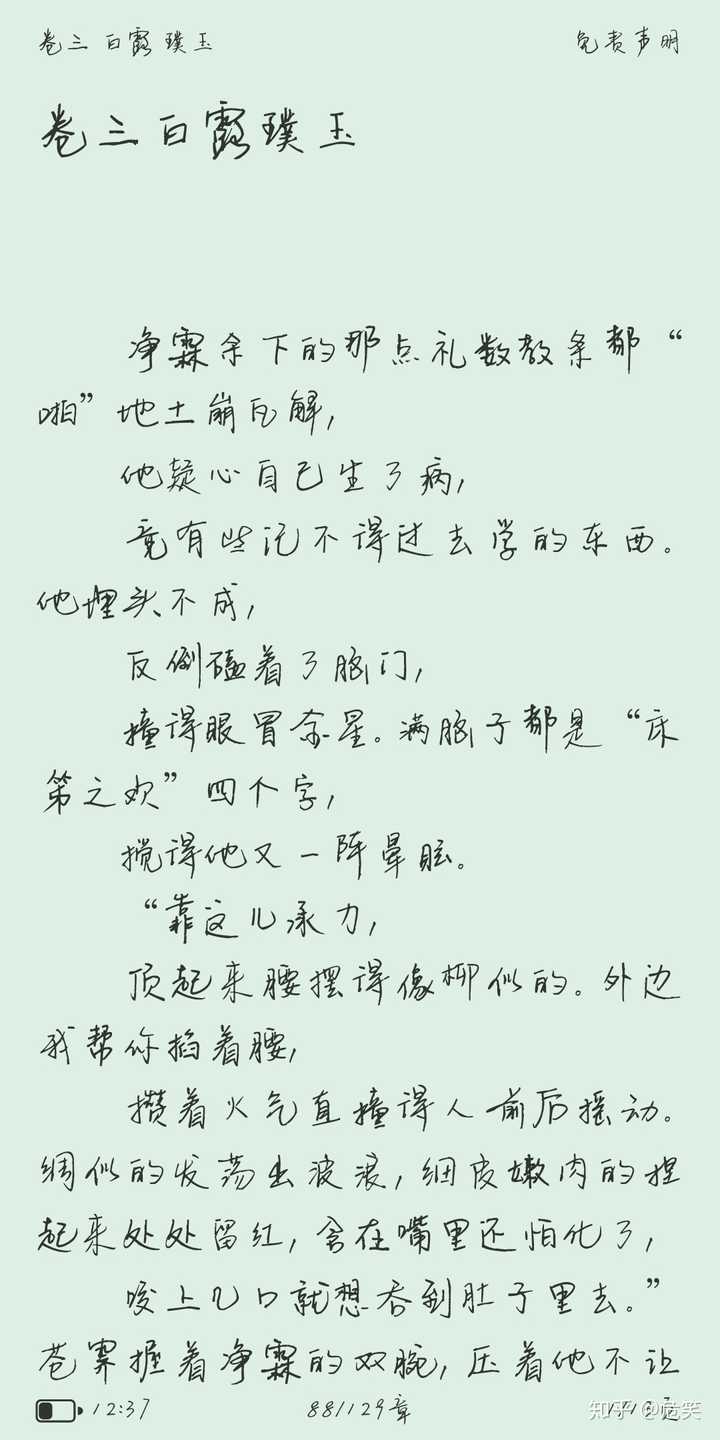 卷三 白露璞玉 免责声明
卷三 白露璞玉
净霖余下的那点礼数教条都“
啪”地土崩瓦解,
他疑心自己生了病,
竟有些记不得过去学的东西。
他埋头不成,
反倒磕着了脑门,
撞得眼冒金星。满脑子都是“床
笫之欢”四个字,
搅得他又一阵晕眩。
“靠这儿承力,
顶起来腰摆得像柳似的。外边
我帮你掐着腰,
攒着火气直撞得人前后摇动。
绸似的发荡出波浪,细皮嫩肉的捏
起来处处留红,含在嘴里还怕化了,
咬上几口就想吞到肚子里去。”
苍霁握着净霖的双腕,压着他不让
12:37 88/129章
知乎 @危笑